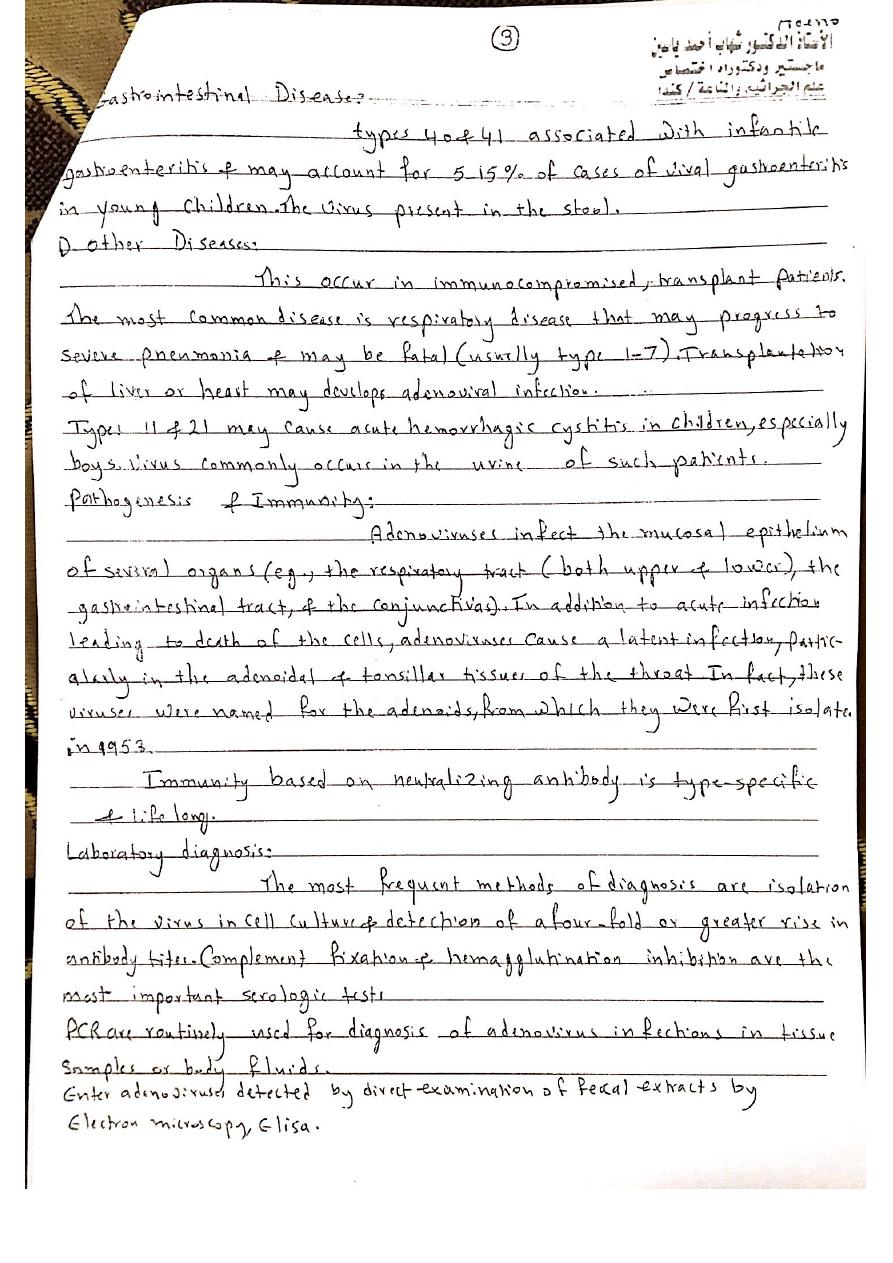 (3)
الأستاذ الدكتور شهاب أحمد ياسين
ماجستير ودكتوراه اختصاص
علم الجراثيم والمناعة / كندا
Gastrointestinal Disease:
types 40 & 41 associated with infantile
gastroenteritis & may account for 5-15% of cases of viral gastroenteritis
in young children. The virus present in the stool.
D. other Diseases:
This occur in immunocompromised, transplant patients.
The most common disease is respiratory disease that may progress to
severe pneumonia & may be fatal (usually type 1-7). Transplantation
of liver or heart may develops adenoviral infection.
Types 11 & 21 may cause acute hemorrhagic cystitis in children, especially
boys. Virus commonly occurs in the urine of such patients.
Pathogenesis & Immunity:
Adenoviruses infect the mucosal epithelium
of several organs (eg., the respiratory tract (both upper & lower), the
gastrointestinal tract, & the conjunctivas). In addition to acute infection
leading to death of the cells, adenoviruses cause a latent infection, partic-
alarly in the adenoidal & tonsillar tissues of the throat In fact, these
viruses were named for the adenoids, from which they were first isolate
in 1953.
Immunity based on neutralizing antibody is type-specific
& life long.
Laboratory diagnosis:
The most frequent methods of diagnosis are isolation
of the virus in cell culture & detection of a four-fold or greater rise in
antibody titer. Complement fixation & hemagglutination inhibition are the
most important serologic tests
PCR are routinely used for diagnosis of adenovirus infections in tissue
samples or body fluids.
Enter adenoviruses detected by direct examination of fecal extracts by
Electron microscopy, Elisa.